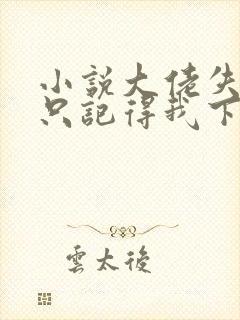 小說大佬失
只記得我下
雲太後